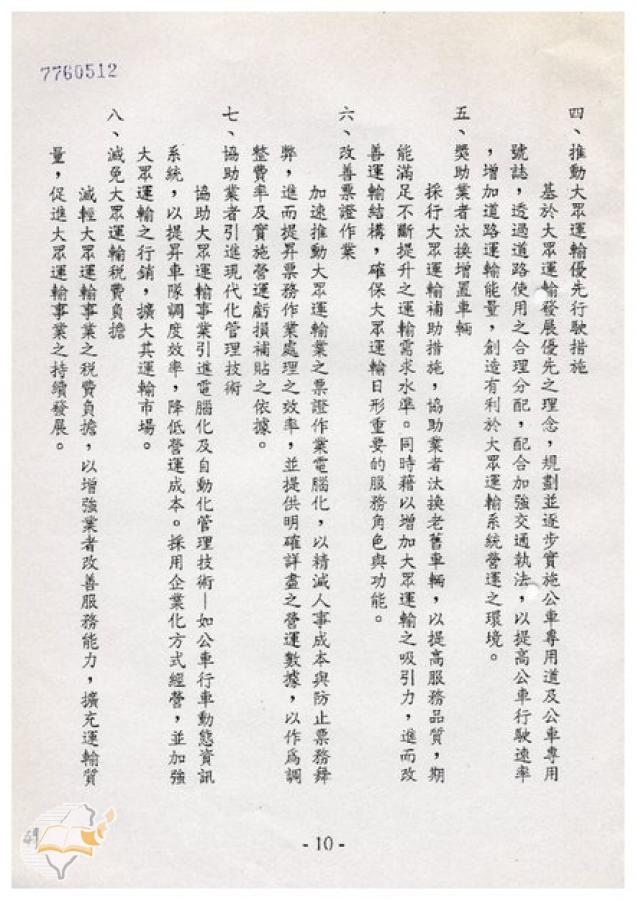 7760512
四、推動大眾運輸優先行駛措施
基於大眾運輸發展優先之理念，規劃並逐步實施公車專用道及公車專用
號誌，透過道路使用之合理分配，配合加強交通執法，以提高公車行駛速率
，增加道路運輸能量，創造有利於大眾運輸系統營運之環境。
五、獎助業者汰換增置車輛
採行大眾運輸補助措施，協助業者汰換老舊車輛，以提高服務品質，期
能滿足不斷提升之運輸需求水準。同時藉以增加大眾運輸之吸引力，進而改
善運輸結構，確保大眾運輸日形重要的服務角色與功能。
六、改善票證作業
加速推動大眾運輸業之票證作業電腦化，以精減人事成本與防止票務舞
弊，進而提昇票務作業處理之效率，並提供明確詳盡之營運數據，以作為調
整費率及實施營運虧損補貼之依據。
七、協助業者引進現代化管理技術
協助大眾運輸事業引進電腦化及自動化管理技術—如公車行車動態資訊
系統，以提昇車隊調度效率，降低營運成本。採用企業化方式經營，並加強
大眾運輸之行銷，擴大其運輸市場。
八、減免大眾運輸稅費負擔
減輕大眾運輸事業之稅費負擔，以增強業者改善服務能力，擴充運輸質
量，促進大眾運輸事業之持續發展。
- 10 -